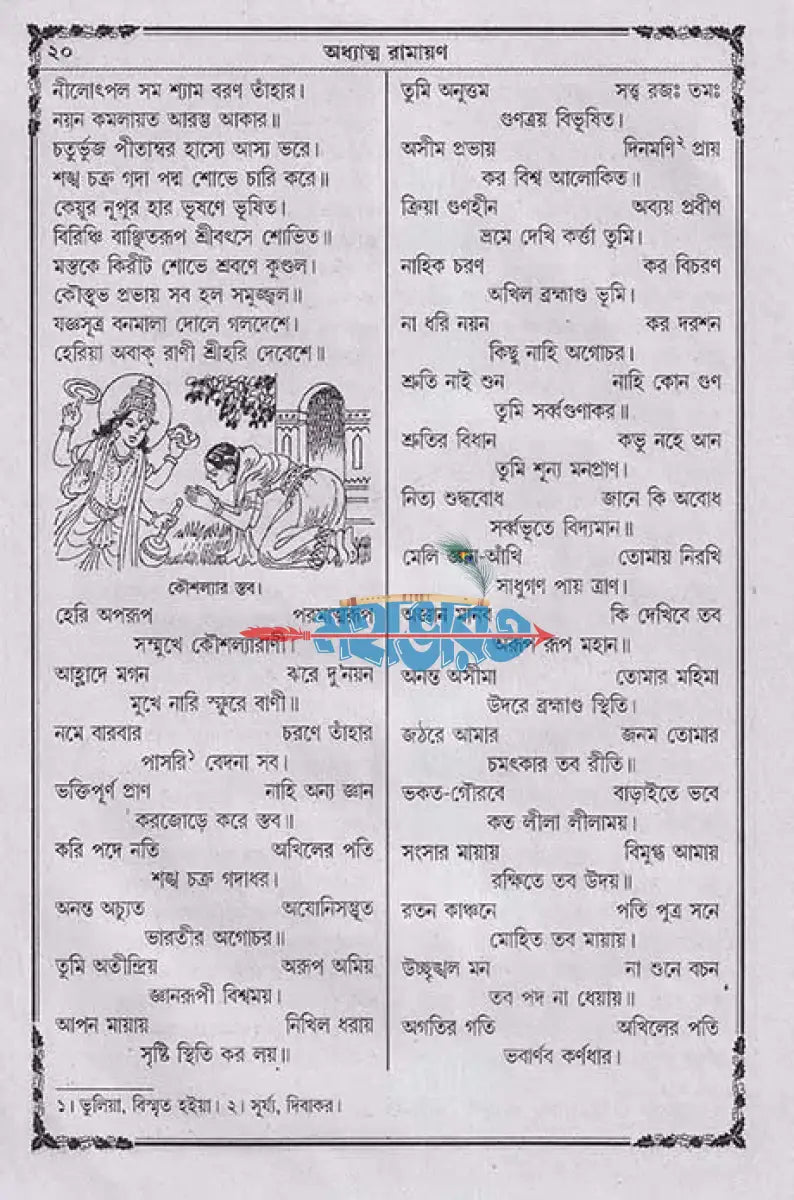 ২০
অধ্যাত্ম রামায়ণ
নীলোৎপল সম শ্যাম বরণ তাঁহার।
নয়ন কমলায়ত আরম্ভ আকার॥
চতুর্ভুজ পীতাম্বর হাস্যে আস্য ভরে।
শঙ্খ চক্র গদা পদ্ম শোভে চারি করে॥
কেয়ূর নূপুর হার ভূষণে ভূষিত।
বিরিঞ্চি বাঞ্ছিতরূপ শ্রীবৎসে শোভিত॥
মস্তকে কিরীট শোভে শ্রবণে কুণ্ডল।
কৌস্তুভ প্রভায় সব হল সমুজ্জ্বল॥
যজ্ঞসূত্র বনমালা দোলে গলদেশে।
হেরিয়া অবাক্ রাণী শ্রীহরি দেবেশে॥
কৌশল্যার স্তব।
হেরি অপরূপ পরমাত্মরূপ
সম্মুখে কৌশল্যারাণী।
আহ্লাদে মগন ঝরে দু'নয়ন
মুখে নারি স্ফুরে বাণী॥
নমে বারবার চরণে তাঁহার
পাসরি১ বেদনা সব।
ভক্তিপূর্ণ প্রাণ নাহি অন্য জ্ঞান
করজোড়ে করে স্তব॥
করি পদে নতি অখিলের পতি
শঙ্খ চক্র গদাধর।
অনন্ত অচ্যুত অযোনিসম্ভূত
ভারতীর অগোচর॥
তুমি অতীন্দ্রিয় অরূপ অমিয়
জ্ঞানরূপী বিশ্বময়।
আপন মায়ায় নিখিল ধরায়
সৃষ্টি স্থিতি কর লয়॥
তুমি অনুত্তম সত্ত্ব রজঃ তমঃ
গুণত্রয় বিভূষিত।
অসীম প্রভায় দিনমণি২ প্রায়
কর বিশ্ব আলোকিত॥
ক্রিয়া গুণহীন অব্যয় প্রবীণ
ভ্রমে দেখি কর্ত্তা তুমি।
নাহিক চরণ কর বিচরণ
অখিল ব্রহ্মাণ্ড ভূমি।
না ধরি নয়ন কর দরশন
কিছু নাহি অগোচর।
শ্রুতি নাই শুন নাহি কোন গুণ
তুমি সর্ব্বগুণাকর॥
শ্রুতির বিধান কভু নহে আন
তুমি শূন্য মনপ্রাণ।
নিত্য শুদ্ধবোধ জানে কি অবোধ
সর্ব্বভূতে বিদ্যমান॥
মেলি জ্ঞান-আঁখি তোমায় নিরখি
সাধুগণ পায় ত্রাণ।
অজ্ঞান মানব কি দেখিবে তব
অরূপ রূপ মহান॥
অনন্ত অসীমা তোমার মহিমা
উদরে ব্রহ্মাণ্ড স্থিতি।
জঠরে আমার জনম তোমার
চমৎকার তব রীতি॥
ভকত-গৌরবে বাড়াইতে ভবে
কত লীলা লীলাময়।
সংসার মায়ায় বিমুগ্ধ আমায়
রক্ষিতে তব উদয়॥
রতন কাঞ্চনে পতি পুত্র সনে
মোহিত তব মায়ায়।
উচ্ছৃঙ্খল মন না শুনে বচন
তব পদ না ধেয়ায়॥
অগতির গতি অখিলের পতি
ভবার্ণব কর্ণধার।
মহাভারত
১। ভুলিয়া, বিস্মৃত হইয়া। ২। সূর্য্য, দিবাকর।